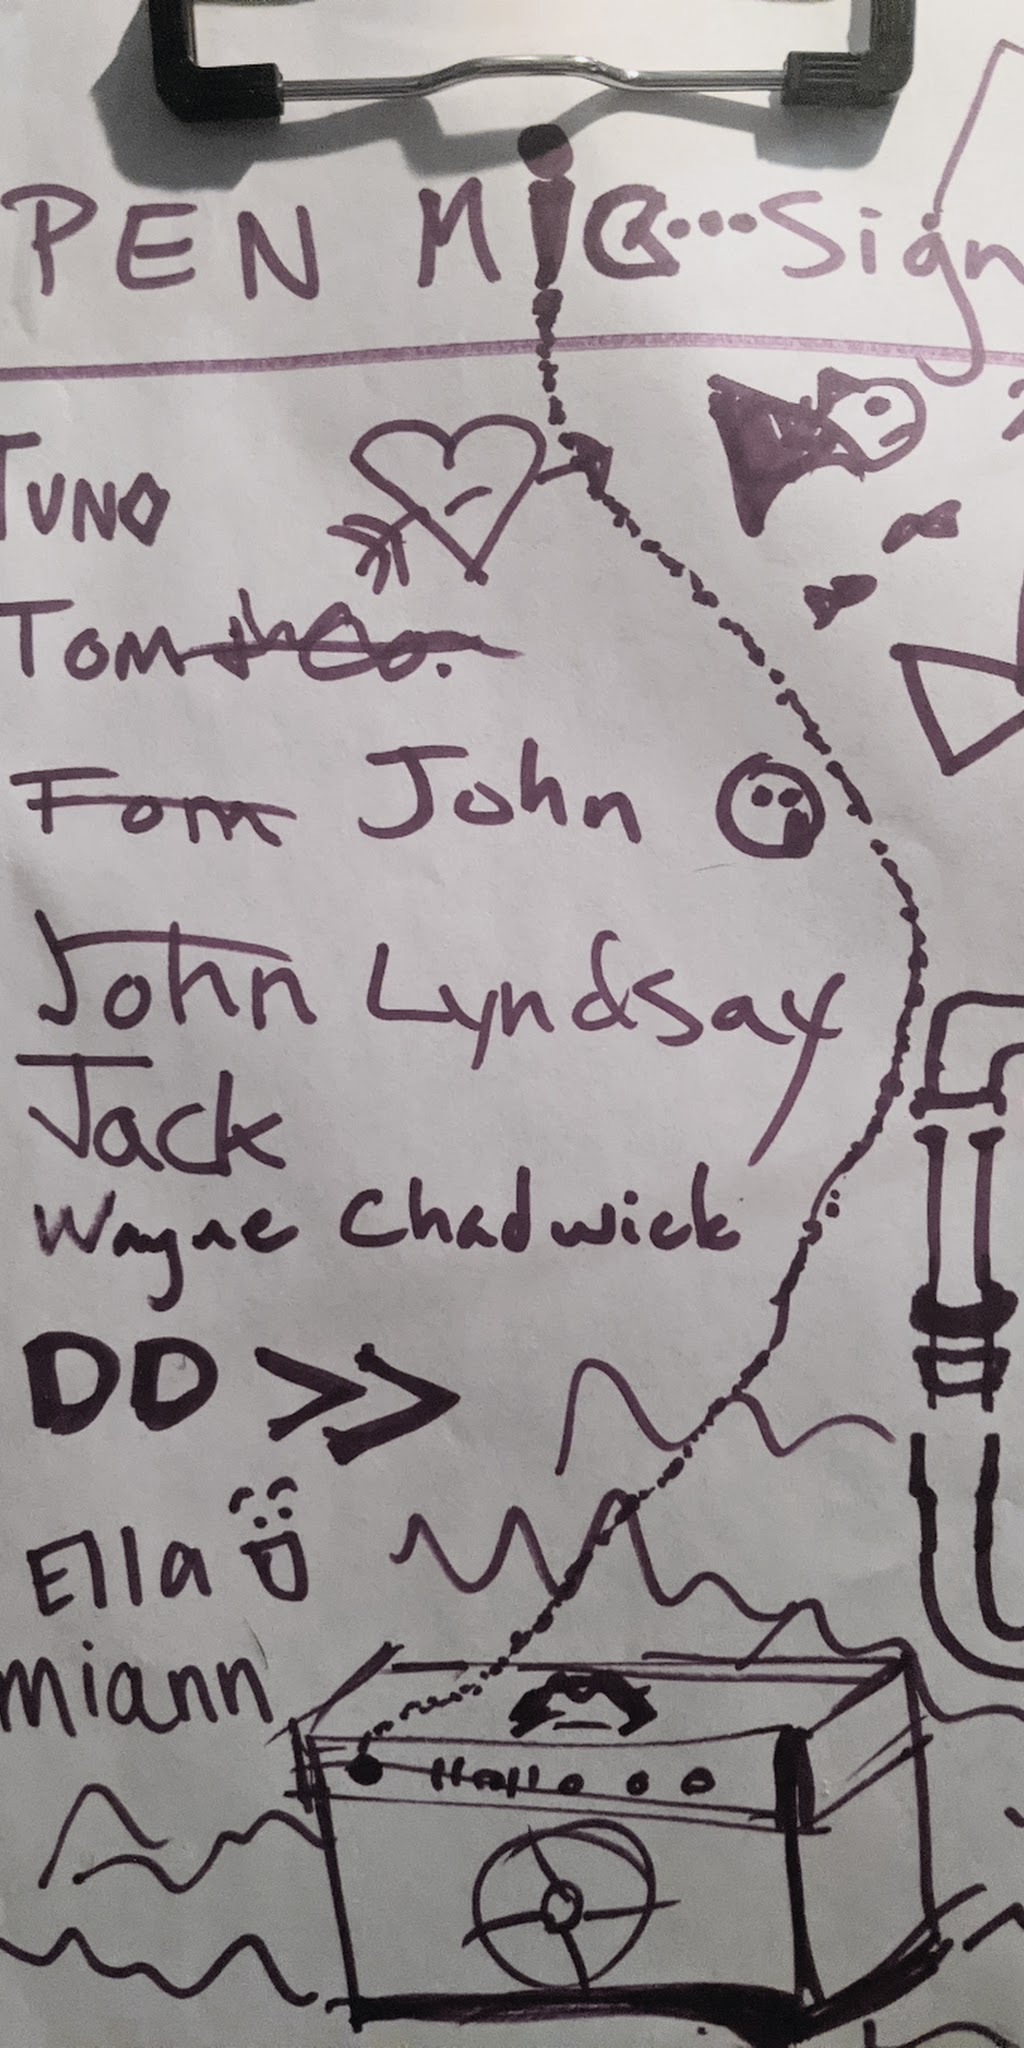 PEN MIC...Sign
TUNO
TOM & Co.
Tom John
John Lyndsay
Jack
Wayne Chadwick
DD >>
Ella
miann